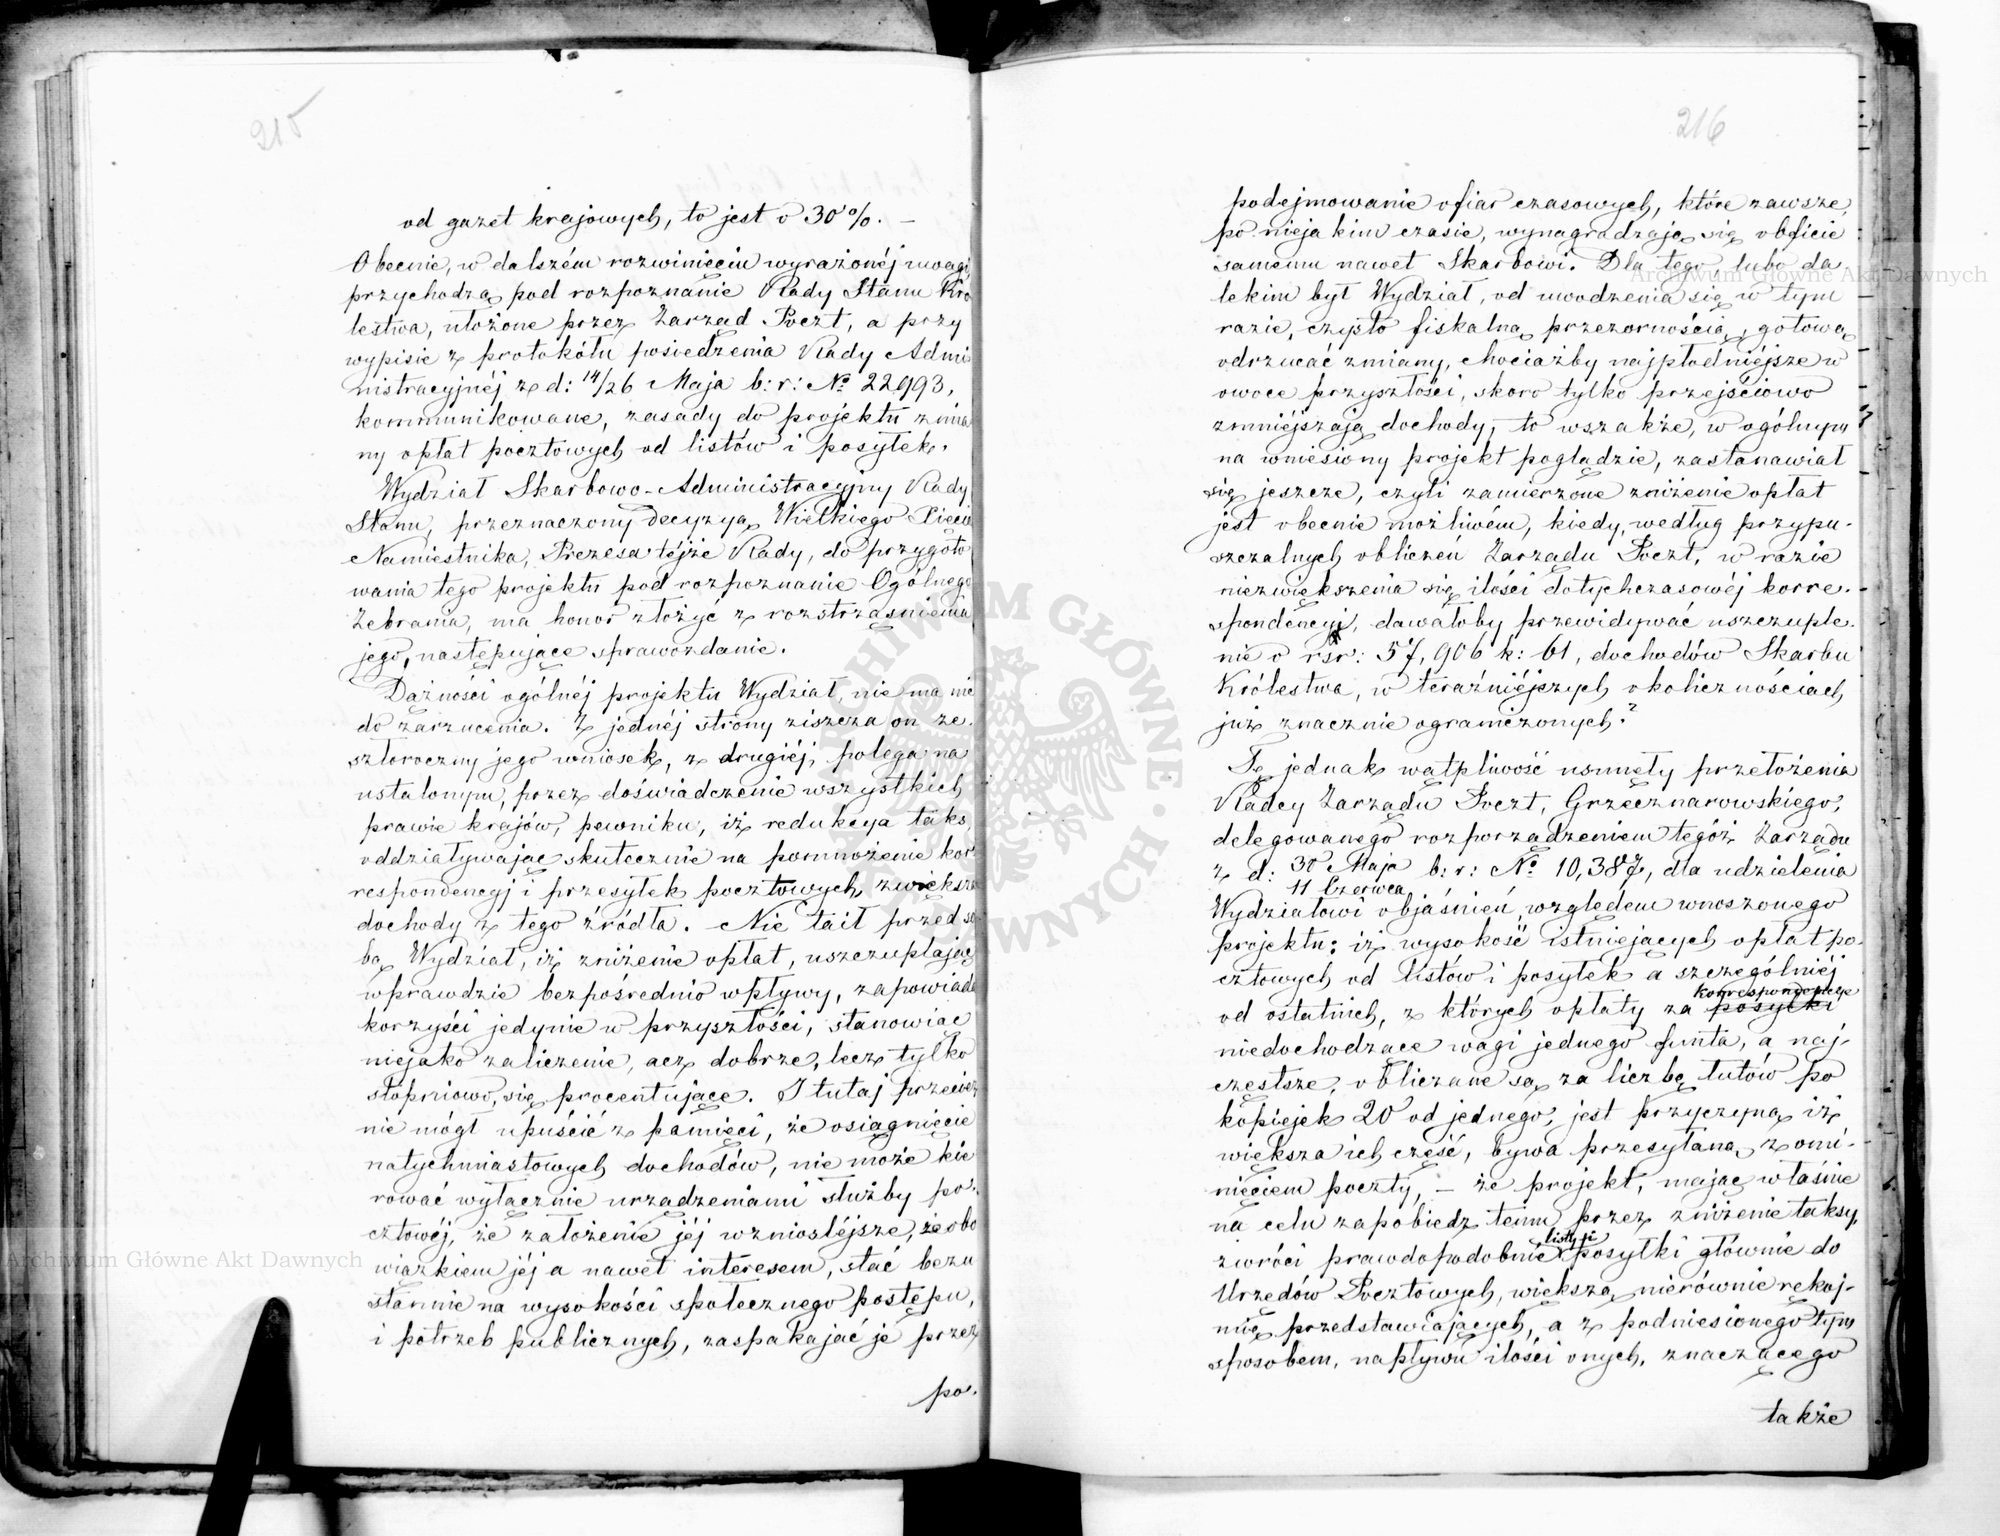 215
od gazet krajowych, to jest o 30%. –
Obecnie, w dalszém rozwinięciu wyrażonéj uwagi,
przychodzą pod rozpoznanie Rady Stanu Kró
lestwa, ułożone przez Zarząd Poczt, a przy
wypisie z protokółu posiedzenia Rady Admi
nistracyjnéj z d: 14/26 Maja b: r: № 22993,
kommunikowane, zasady do projektu zmia
ny opłat pocztowych od listów i posyłek.
Wydział Skarbowo-Administracyjny Rady
Stanu, przeznaczony decyzyą Wielkiego Xięcia
Namiestnika, Prezesa téjże Rady, do przygoto
wania tego projektu pod rozpoznanie Ogólnego
Zebrania, ma honor złożyć z roztrząśnienia
jego, następujące sprawozdanie.
Dążności ogólnéj projektu Wydział, nie ma nic
do zarzucenia. Z jednéj strony ziszcza on ze-
szłoroczny jego wniosek, z drugiéj, polega na
ustalonym, przez doświadczenie wszystkich
prawie krajów, pewniku, iż redukcya taks,
oddziaływając skutecznie na pomnożenie kor-
respondencyj i przesyłek pocztowych, zwiększa
dochody z tego źródła. Nie taił przed so
bą Wydział, iż zniżenie opłat, uszczuplając
wprawdzie bezpośrednio wpływy, zapowiada
korzyści jedynie w przyszłości, stanowiąc
niejako zaliczenie, acz dobrze, lecz tylko
stopniowo, się procentujące. I tutaj przecież
nie mógł upuścić z pamięci, że osiągnięcie
natychmiastowych dochodów, nie może kie
rować wyłącznie urządzeniami służby po-
cztowéj, że założenie jéj wznioślejsze, że obo
wiązkiem jéj a nawet interesem, stać bezu
stannie na wysokości społecznego postępu,
i potrzeb publicznych, zaspakajać je przez
po-
216
podejmowanie ofiar czasowych, które zawsze,
po niejakim czasie, wynagradzają się obficie
samemu nawet Skarbowi. Dla tego, lubo da
lekim był Wydział, od uwodzenia się w tym
razie, czysto fiskalną przezornością, gotową
odrzucać zmiany, chociażby najpłodniéjsze w
owoce przyszłości, skoro tylko przejściowo
zmniéjszają dochody, to wszakże, w ogólnym
na wniesiony projekt poglądzie, zastanawiał
się jeszcze, czyli zamierzone zniżenie opłat
jest obecnie możliwém, kiedy, według przypu-
szczalnych obliczeń Zarządu Poczt, w razie
niezwiększenia się ilości dotychczasowéj korre-
spondencyj, dawałoby przewidywać uszczuple-
nie o rsr: 57,906 k: 61, dochodów Skarbu
Królestwa, w teraźniéjszych okolicznościach,
już znacznie ograniczonych?
Tę jednak wątpliwość usunęły przełożenia
Radcy Zarządu Poczt, Grzecznarowskiego,
delegowanego rozporządzeniem tegóż Zarządu
z d: 30 Maja b: r: № 10,387, dla udzielenia
11 Czerwca
Wydziałowi objaśnień, względem wnoszonego
projektu: iż wysokość istniejących opłat po-
cztowych od listów i posyłek a szczególniéj
korrespondencye
od ostatnich, z których opłaty za posyłki
niedochodzące wagi jednego funta, a naj-
częstsze, obliczane są za liczbę łutów po
kopiejek 20 od jednego, jest przyczyną iż
większa ich część, bywa przesyłaną z omi-
nięciem poczty, – że projekt, mając właśnie
na celu zapobiedz temu, przez zniżenie taksy,
listy i
zwróci prawdopodobnie posyłki głównie do
Urzędów Pocztowych, większą nierównie rękoj-
mię przedstawiających, a z podniesionego tym
sposobem, napływu ilości onych, znaczącego
także